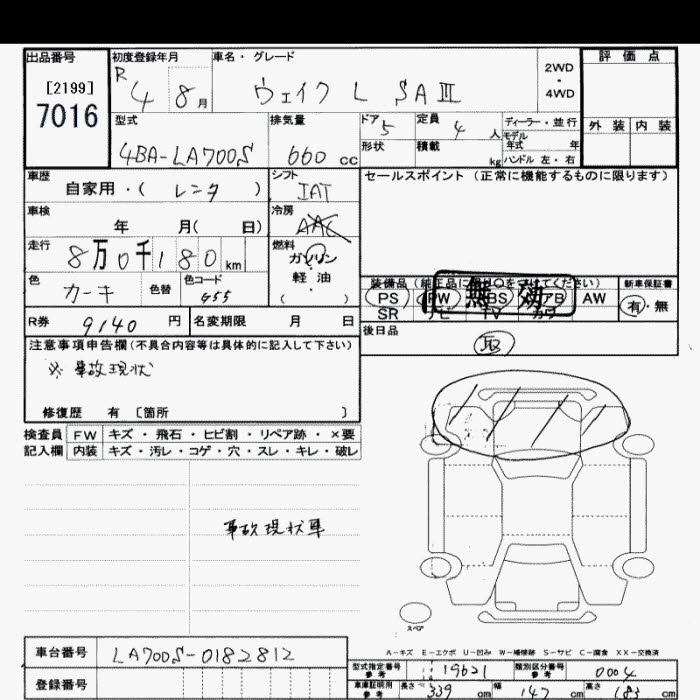 出品番号
[2199]
7016
初度登録年月
R 4 8月
車名・グレード
ウェイク L SAⅢ
2WD
・
4WD
評価点
外装 内装
型式
4BA-LA700S
排気量
660 cc
ドア 5
形状
定員 4 人
積載 kg
ディーラー・並行
モデル年式 年
ハンドル 左・右
車歴
自家用・( レンタ )
シフト
IAT
セールスポイント (正常に機能するものに限ります)
車検
年 月( 日)
冷房
AAC
走行
8万0千180 km
燃料
ガソリン
軽・油
( )
色
カーキ
色替
色コード
G55
装備品
PS PW ABS エアB AW
SR ナビ TV カワ
無効
新車保証書
有・無
R券 9140 円
名変期限 月 日
後日品
取
注意事項申告欄(不具合内容等は具体的に記入して下さい)
※ 事故現状
修復歴 有 [箇所 ]
検査員
記入欄
FW キズ・飛石・ヒビ割・リペア跡・×要
内装 キズ・汚レ・コゲ・穴・スレ・キレ・破レ
事故現状車
スペア
A-キズ E-エクボ U-凹み W-補修跡 S-サビ C-腐食 XX-交換済
車台番号 LA700S-0182812
登録番号
型式指定番号
参考
19621
類別区分番号
参考
0004
車庫証明用
参考
長さ 339 cm
幅 147 cm
高さ 183 cm